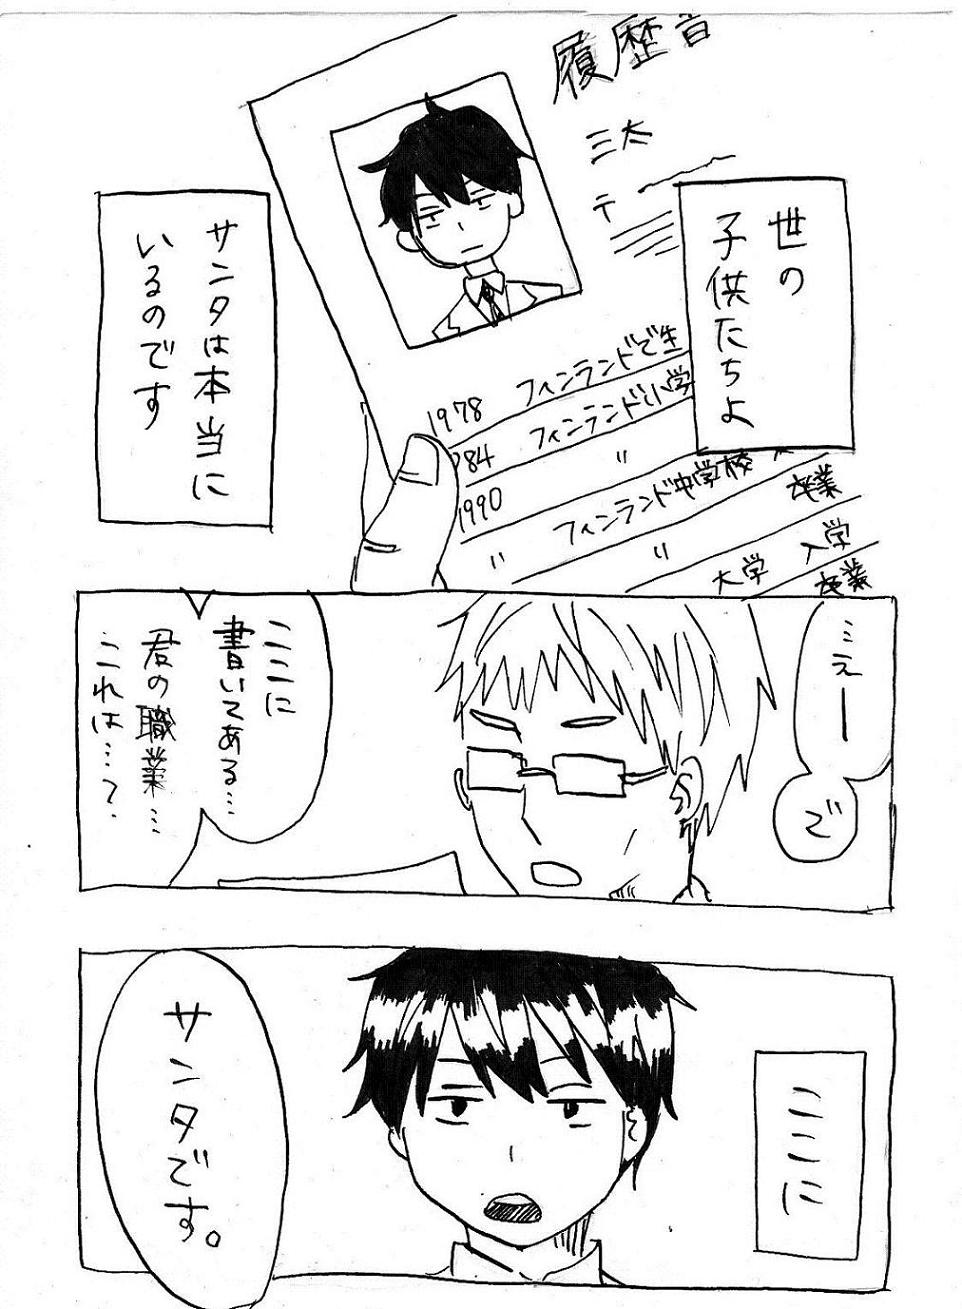 履歴書
三太
〒
世の
子供たちよ
サンタは本当に
いるのです
1978 フィンランドで生
984 フィンランド小学
1990 〃
フィンランド中学校 入
〃 〃 卒業
大学 入学
卒業
ええー
で
ここに
書いてある…
君の職業…
これは…?
ここに
サンタです。